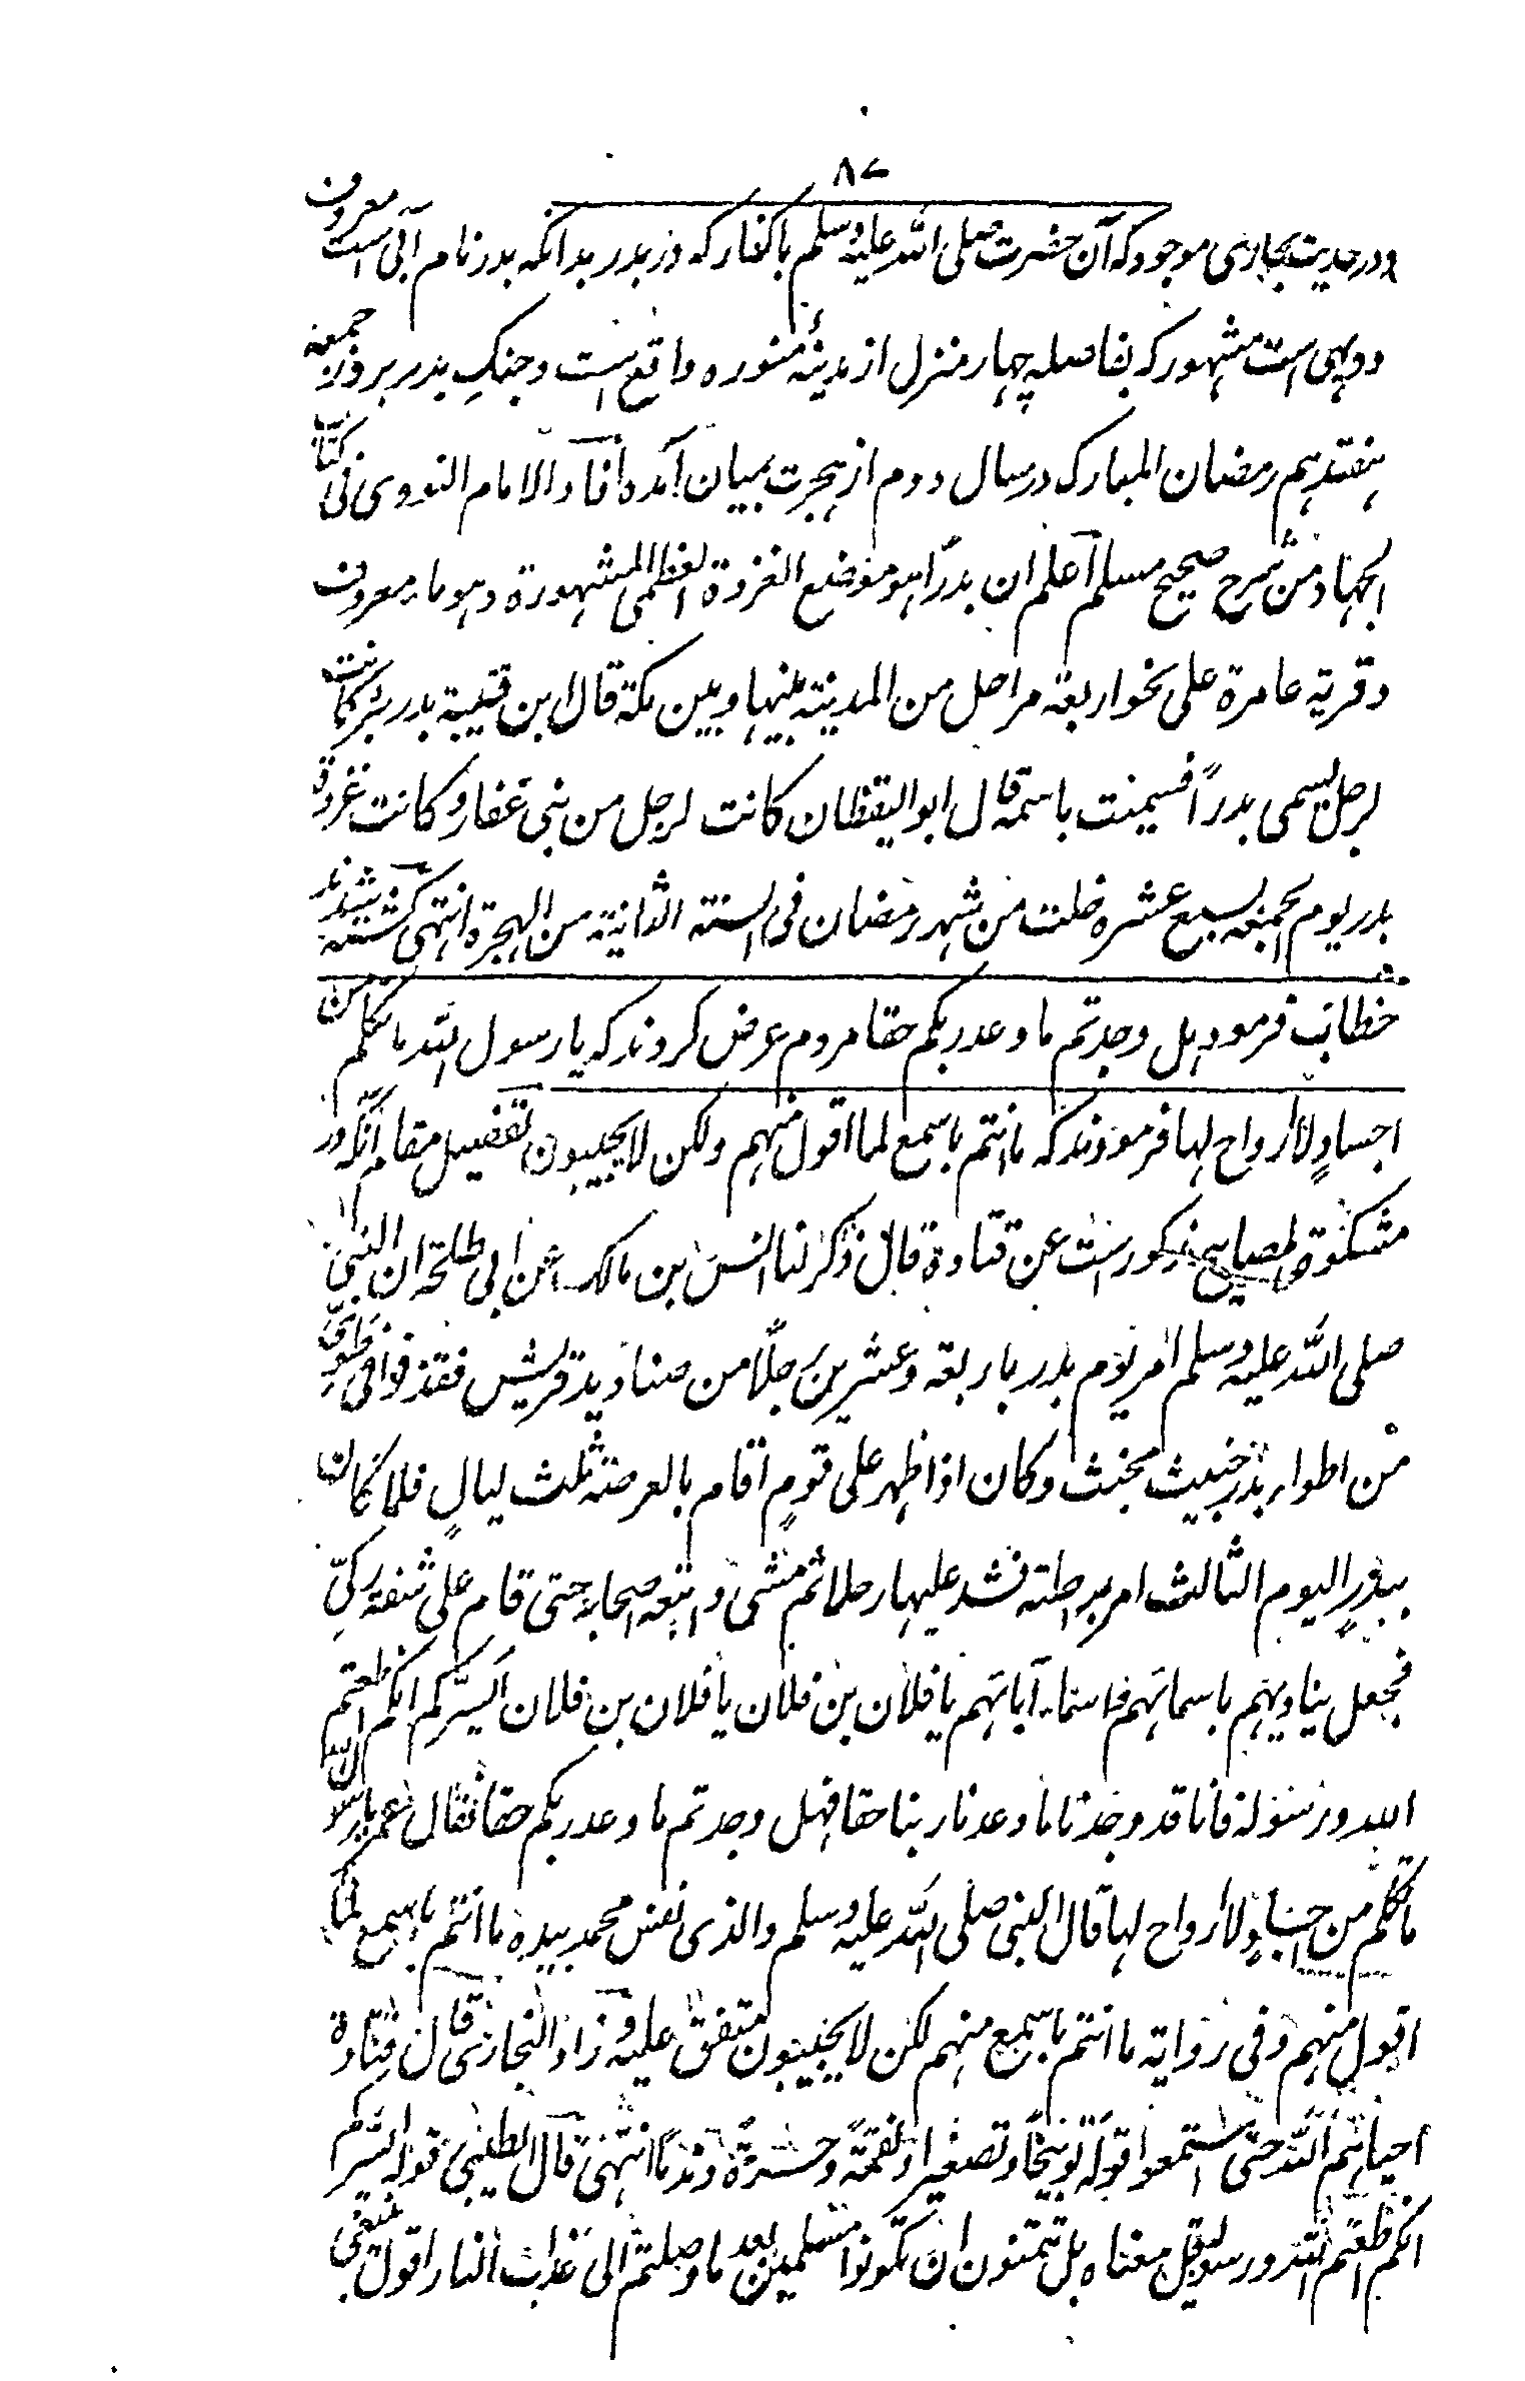 ۸۷
و در حدیث بخاری موجود که آن حضرت صلی الله علیه وسلم با کفار که در بدر بدانکه بدر نام آبی است معروف
و دیهی است مشهور که بفاصله چهار منزل از مدینه منوره واقع است و جنگ بدر بروز جمعه
هفتدهم رمضان المبارک در سال دوم از هجرت بمیان آمده افاد الامام النووی فی کتاب
الجهاد من شرح صحیح مسلم اعلم ان بدراً هو موضع الغزوة العظمی المشهورة وهو ماء معروف
وقریة عامرة علی نحو اربعة مراحل من المدینة بینها وبین مکة قال ابن قتیبة بدر بئر کانت
لرجل یسمی بدراً فسمیت باسمه قال ابو الیقظان کانت لرجل من بنی غفار وکانت غزوة
بدر یوم الجمعة لسبع عشرة خلت من شهر رمضان فی السنة الثانیة من الهجرة انتهی کشته شدند
خطاب فرمود هل وجدتم ما وعد ربکم حقا مردم عرض کردند که یا رسول الله ما تکلم من
اجسادٍ لا ارواح لها فرمودند که ما انتم باسمع لما اقول منهم ولکن لا یجیبون تفصیل مقام آنکه در
مشکوة المصابیح مذکور است عن قتادة قال ذکر لنا انس بن مالک عن ابی طلحة ان النبی
صلی الله علیه وسلم امر یوم بدر باربعة وعشرین رجلًا من صنادید قریش فقذفوا فی طویّ
من اطواء بدر خبیث مخبث وکان اذا ظهر علی قومٍ اقام بالعرصة ثلث لیالٍ فلما کان
ببدرٍ الیوم الثالث امر براحلته فشد علیها رحلها ثم مشی واتبعه اصحابه حتی قام علی شفة رکیّ
فجعل ینادیهم باسمائهم واسماء آبائهم یا فلان بن فلان یا فلان بن فلان ایسرّکم انکم اطعتم
الله ورسوله فانا قد وجدنا ما وعدنا ربنا حقا فهل وجدتم ما وعد ربکم حقا فقال عمر یا رسول الله
ما تکلم من اجسادٍ لا ارواح لها قال النبی صلی الله علیه وسلم والذی نفس محمد بیده ما انتم باسمع لما
اقول منهم وفی روایة ما انتم باسمع منهم لکن لا یجیبون متفق علیه وزاد البخاری قال قتادة
احیاهم الله حتی استمعوا قوله توبیخًا وتصغیرا ونقمةً وحسرةً وندمًا انتهی قال الطیبی قوله ایسرکم
انکم اطعتم الله ورسوله قیل معناه بل تتمنون ان تکونوا مسلمین بعد ما وصلتم الی عذاب النار اقول